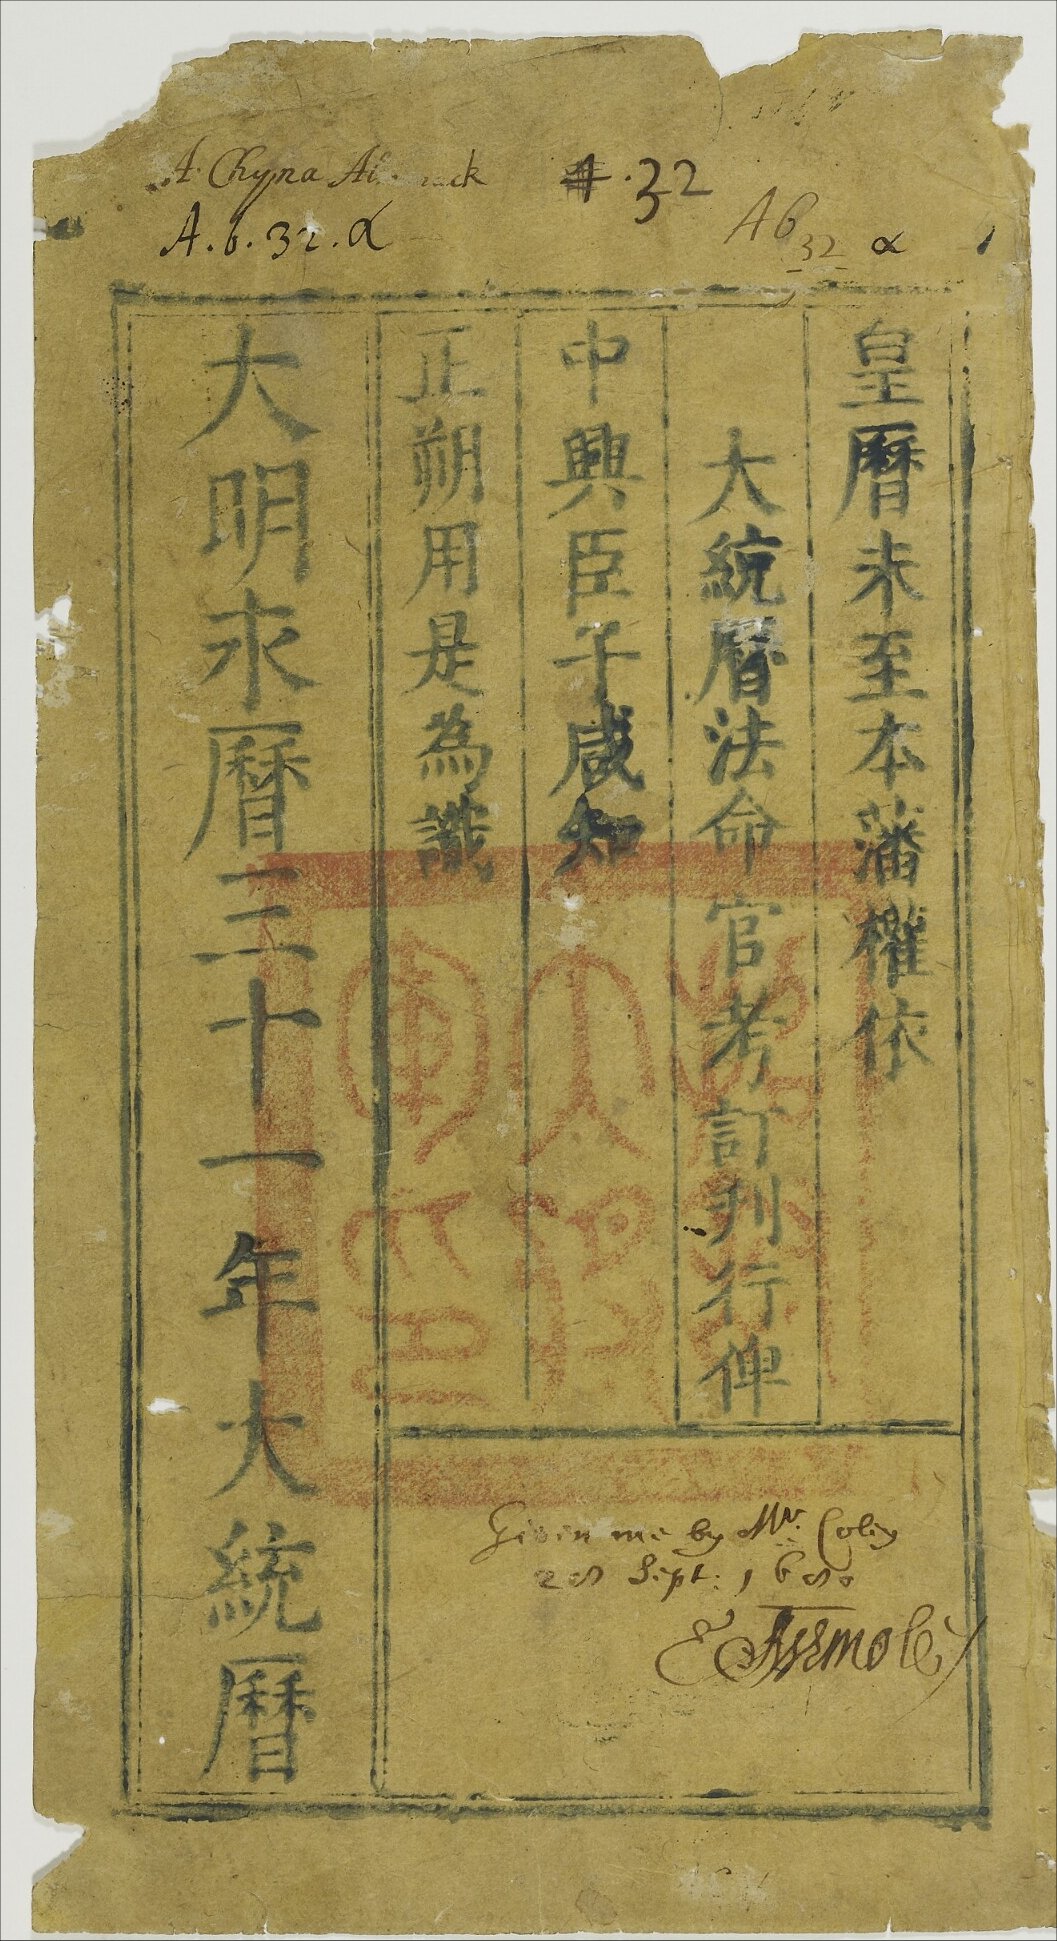 A Chyna
A.b.32.α
32
Ab
32 α
皇曆未至本藩權依
大統曆法命官考訂刊行俾
中興臣子咸知
正朔用是為識
大明永曆三十一年大統曆
Given me by Mr. Coley
28 Sept: 1680
E Ashmole